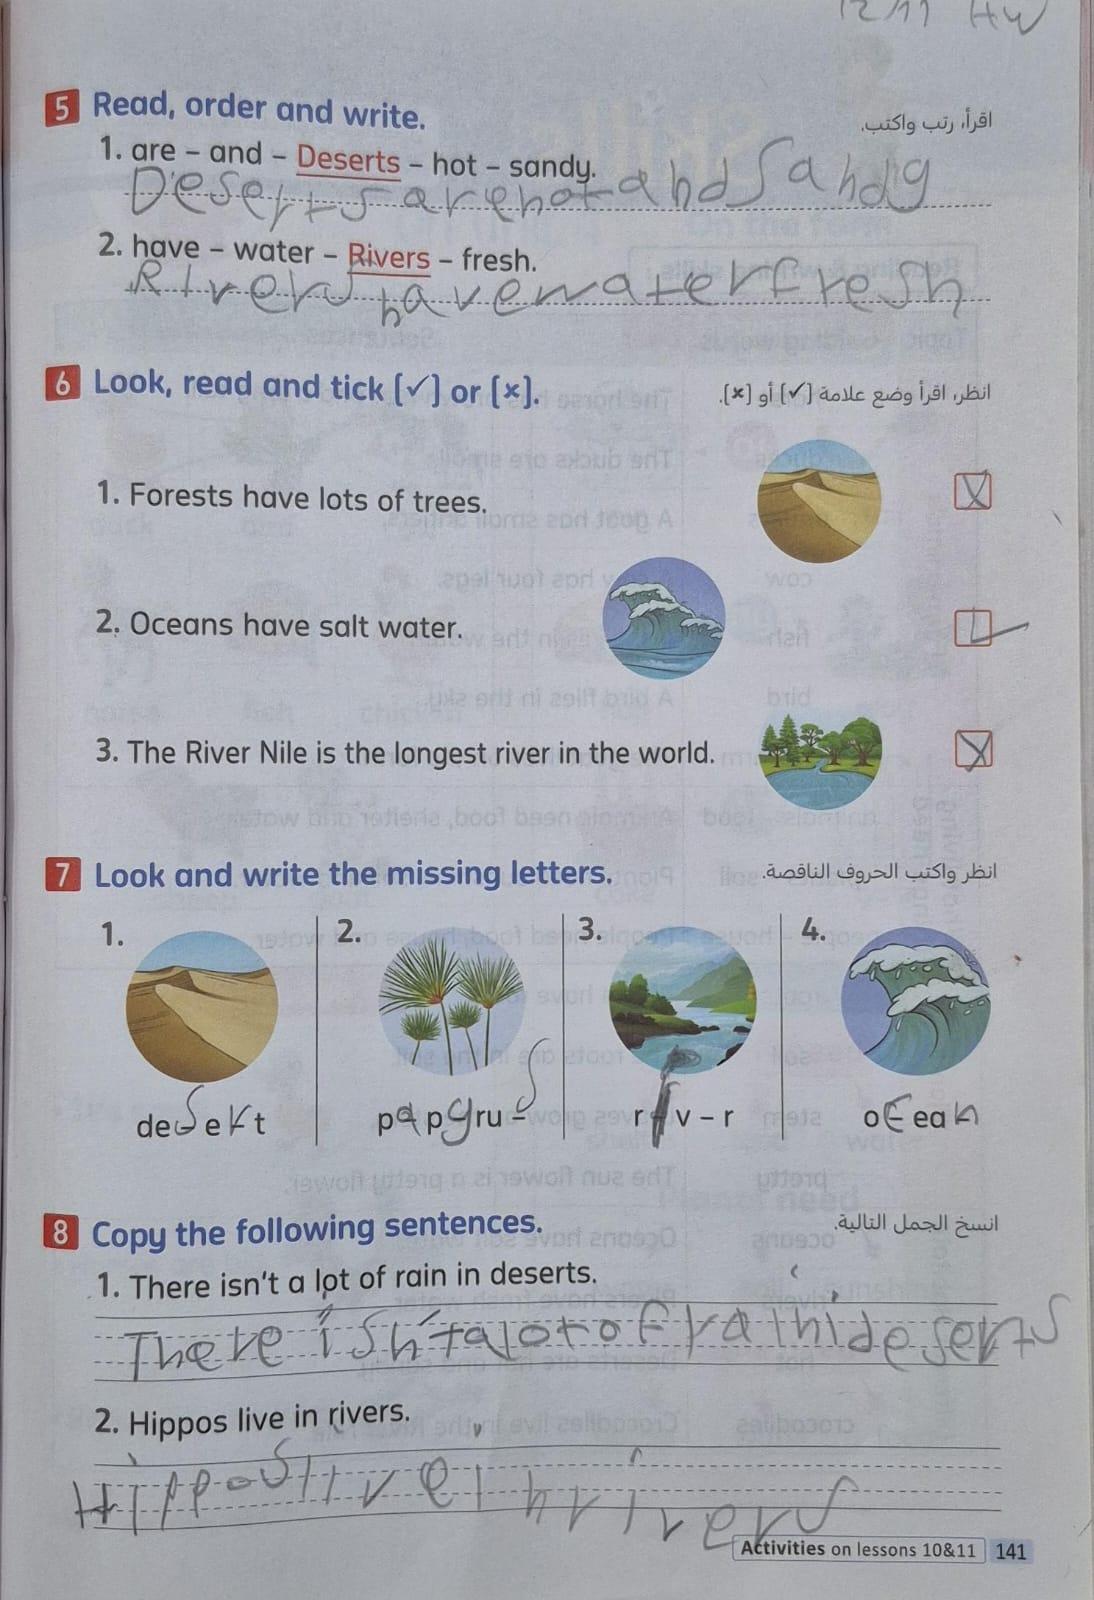 12/11 HW
5 Read, order and write.
اقرأ، رتب واكتب.
1. are – and – Deserts – hot – sandy.
Deserts are hot and sandy
2. have – water – Rivers – fresh.
Rivers have water fresh
6 Look, read and tick [✓] or [×].
انظر، اقرأ وضع علامة [✓] أو [×].
1. Forests have lots of trees.
2. Oceans have salt water.
3. The River Nile is the longest river in the world.
7 Look and write the missing letters.
انظر واكتب الحروف الناقصة.
1. 2. 3. 4.
desert papyrus riv–r ocean
8 Copy the following sentences.
انسخ الجمل التالية.
1. There isn't a lot of rain in deserts.
There isn't a lot of rain i deserts
2. Hippos live in rivers.
Hippos live in rivers
Activities on lessons 10&11 141